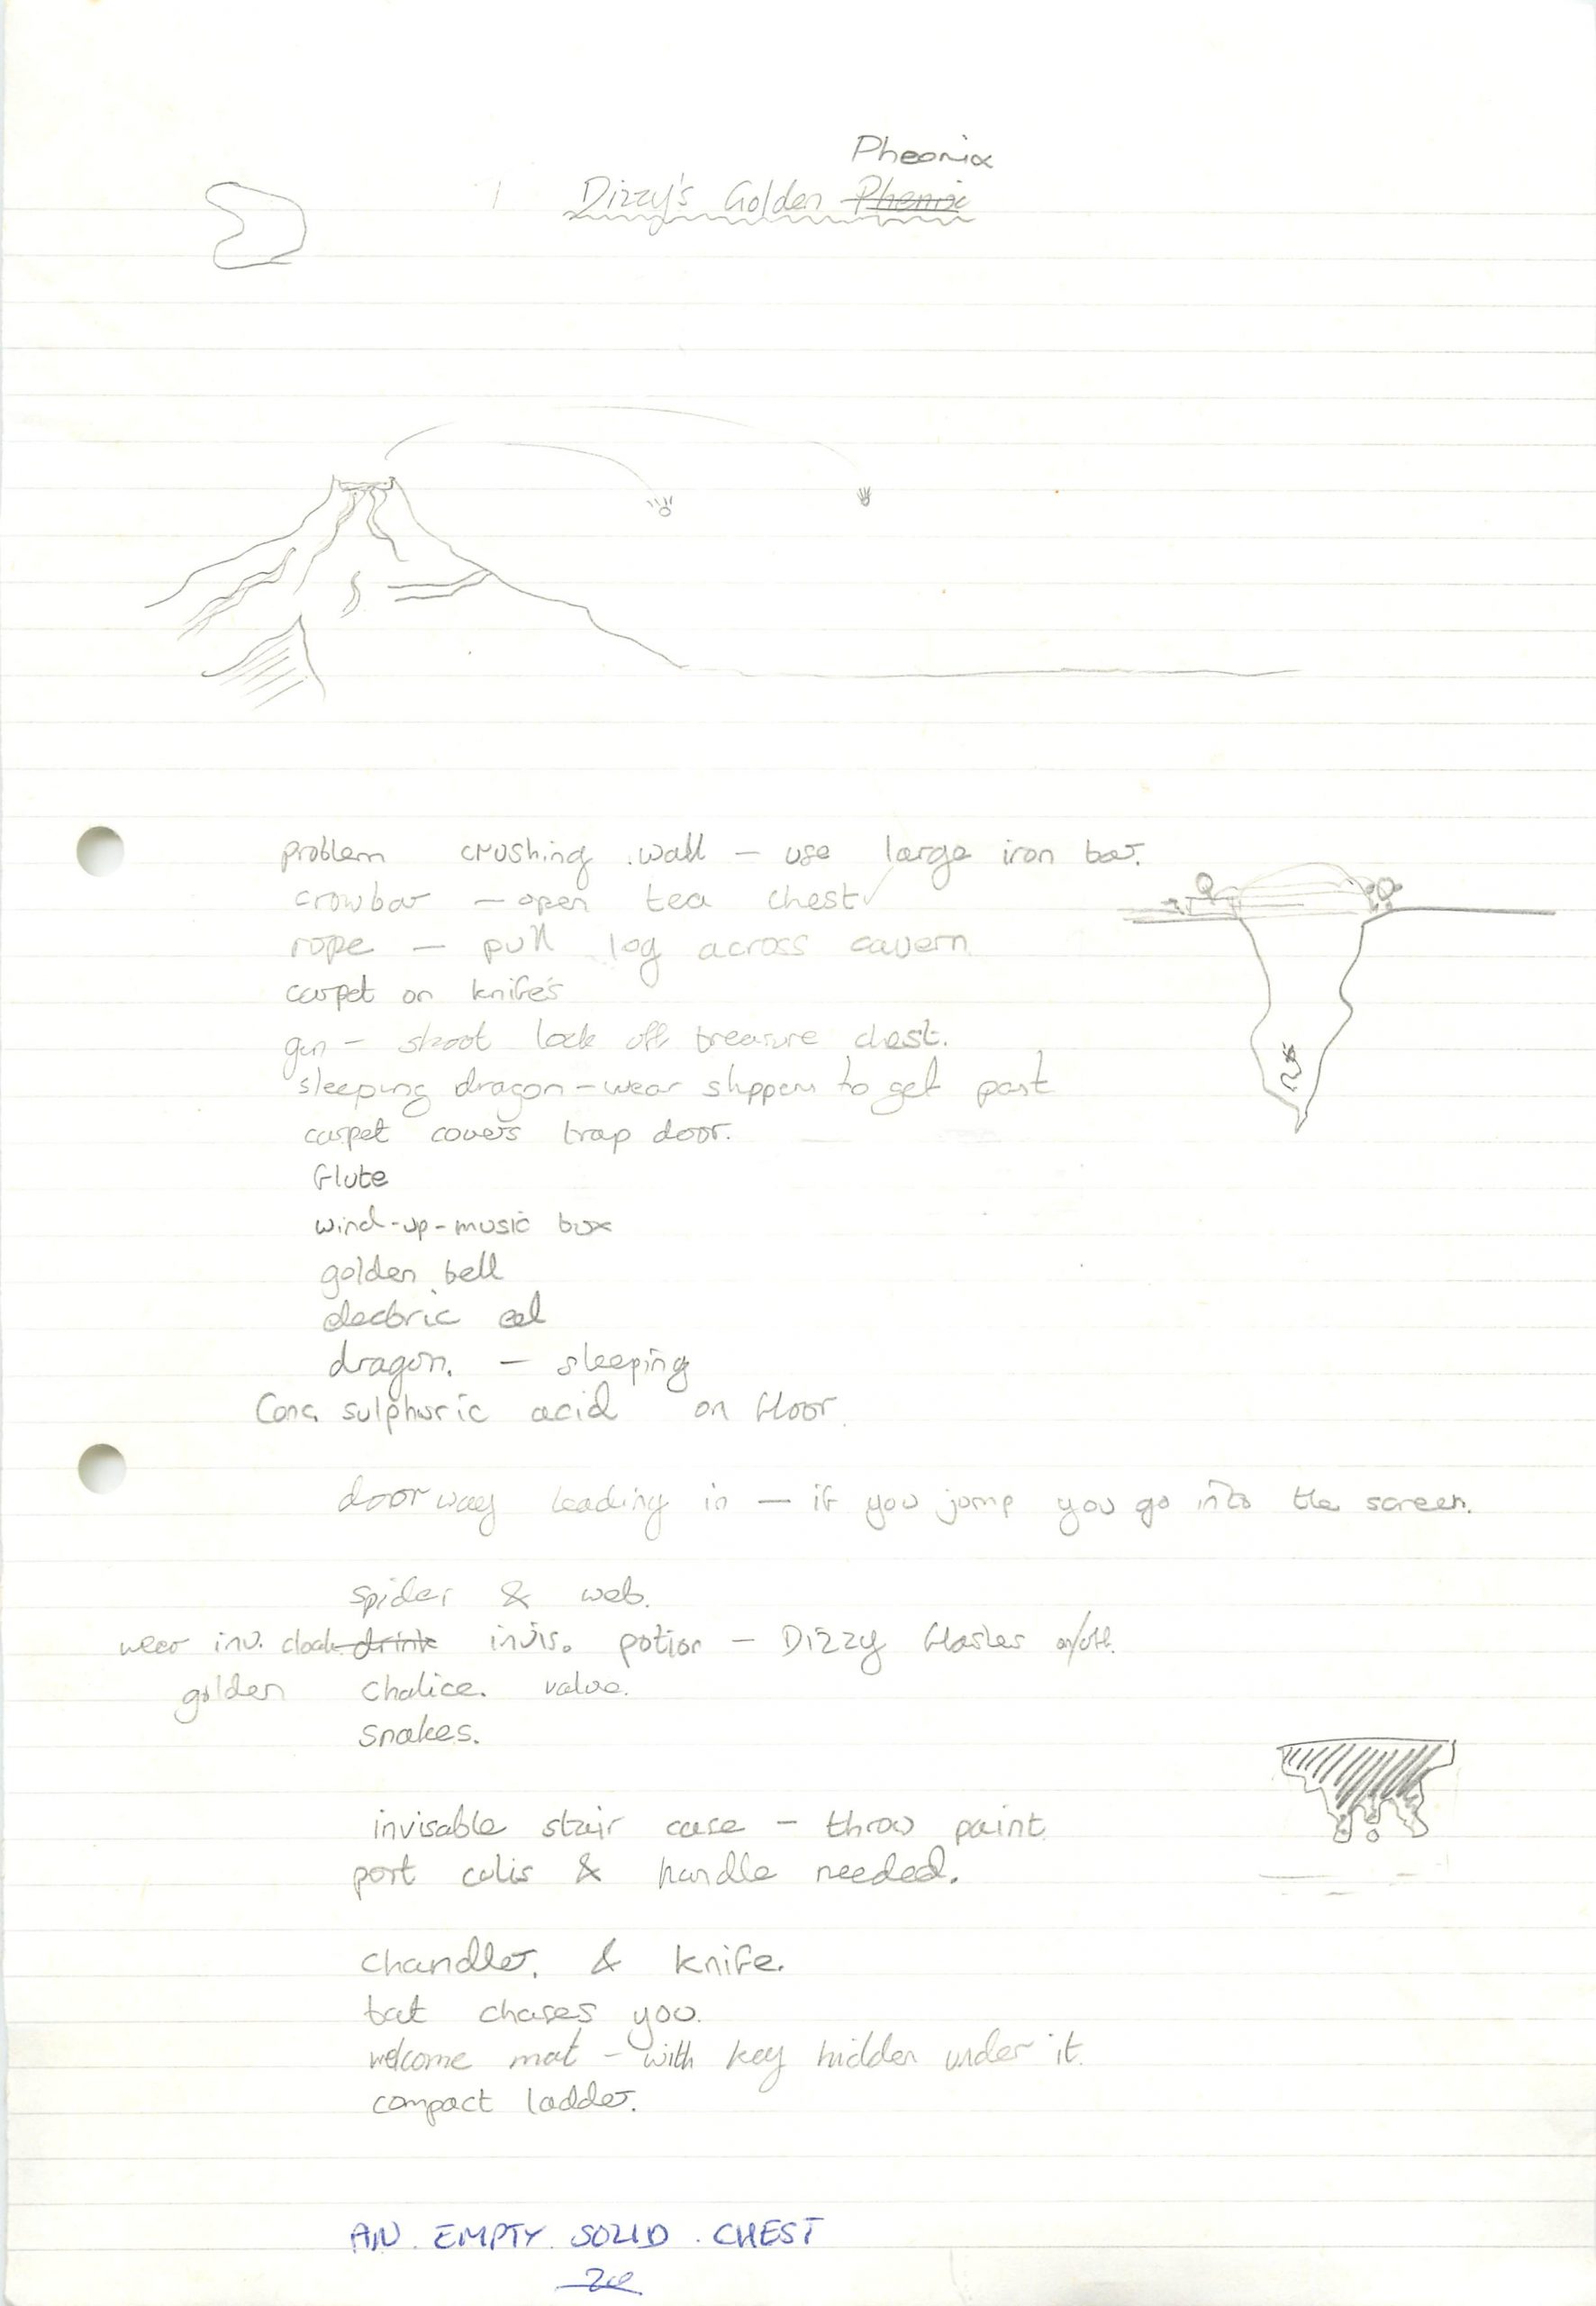 Pheonix
Dizzy's Golden Phenix
problem crushing wall - use large iron bar.
crowbar - open tea chest ✓
rope - pull log across cavern
carpet on knife's
gun - shoot lock off treasure chest.
sleeping dragon - wear slippers to get past
carpet covers trap door.
flute
wind-up-music box
golden bell
electric eel
dragon. - sleeping
Conc. sulphuric acid on floor.
doorway leading in - if you jump you go into the screen.
spider & web.
wear inv. cloak drink invis. potion - Dizzy flashes on/off.
golden chalice. value.
snakes.
invisable stair case - throw paint
port culis & handle needed.
chandler. & knife.
bat chases you.
welcome mat - with key hidden under it.
compact ladder.
AN. EMPTY. SOLID. CHEST
20